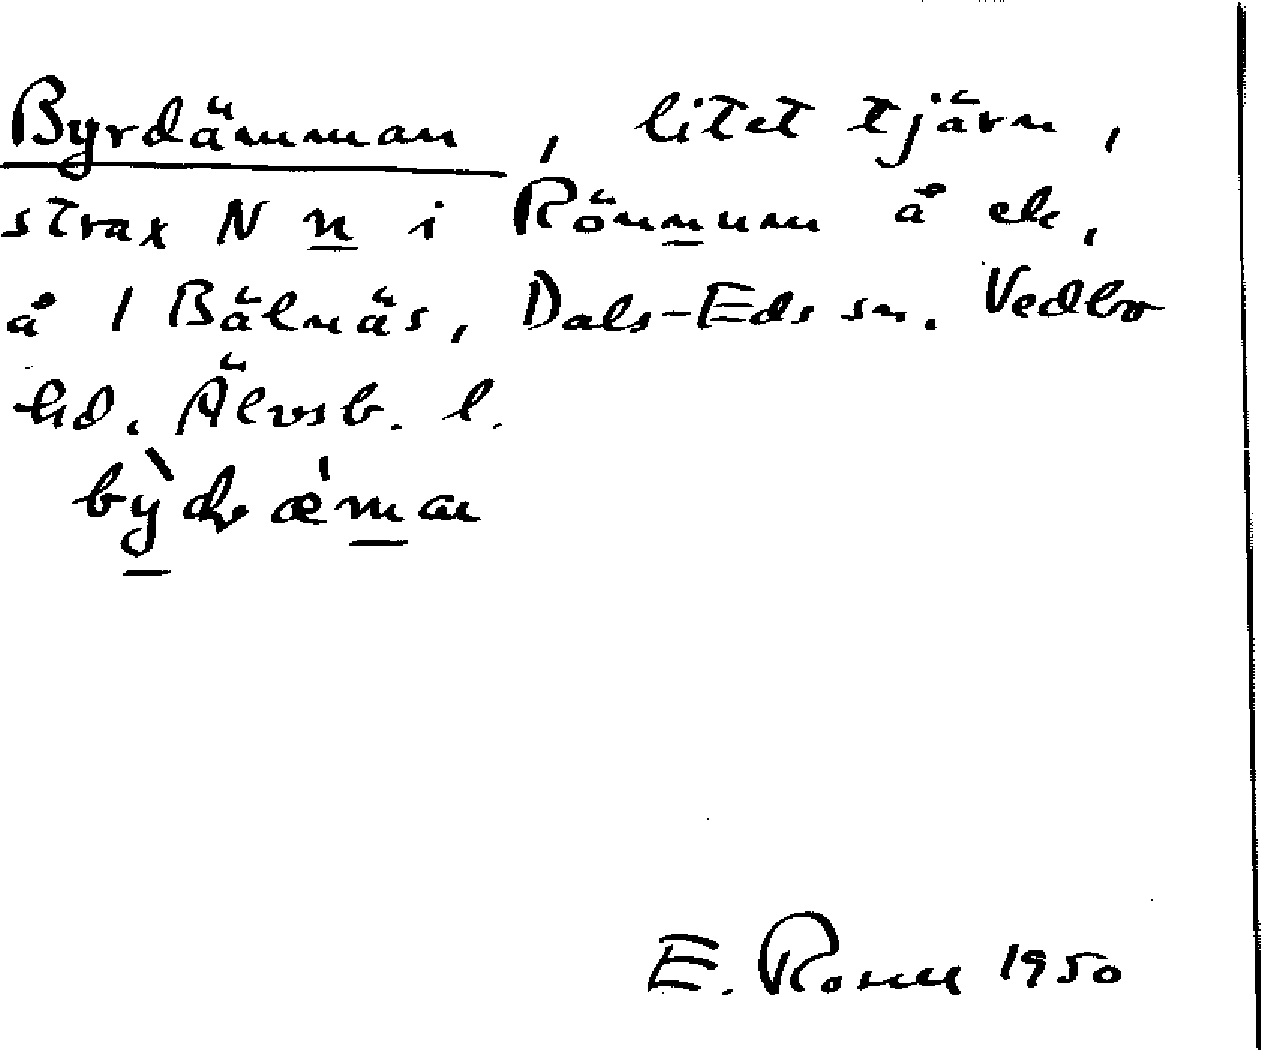 Byrdämman, litet tjärn,
strax N n i Rönnum å ek,
å 1 Bälnäs, Dals-Eds sn. Vedbo
hd. Älvsb. l.
E. 1950